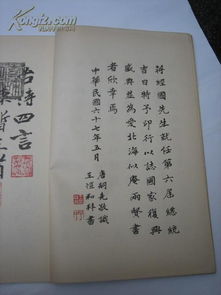 蔣經國先生就任第六屆總統
吉日特予印行以誌國家復興
盛典並為愛北海似庵兩賢書
者欣幸焉
中華民國六十七年五月
唐嗣堯敬識
王愷和拜書
四言